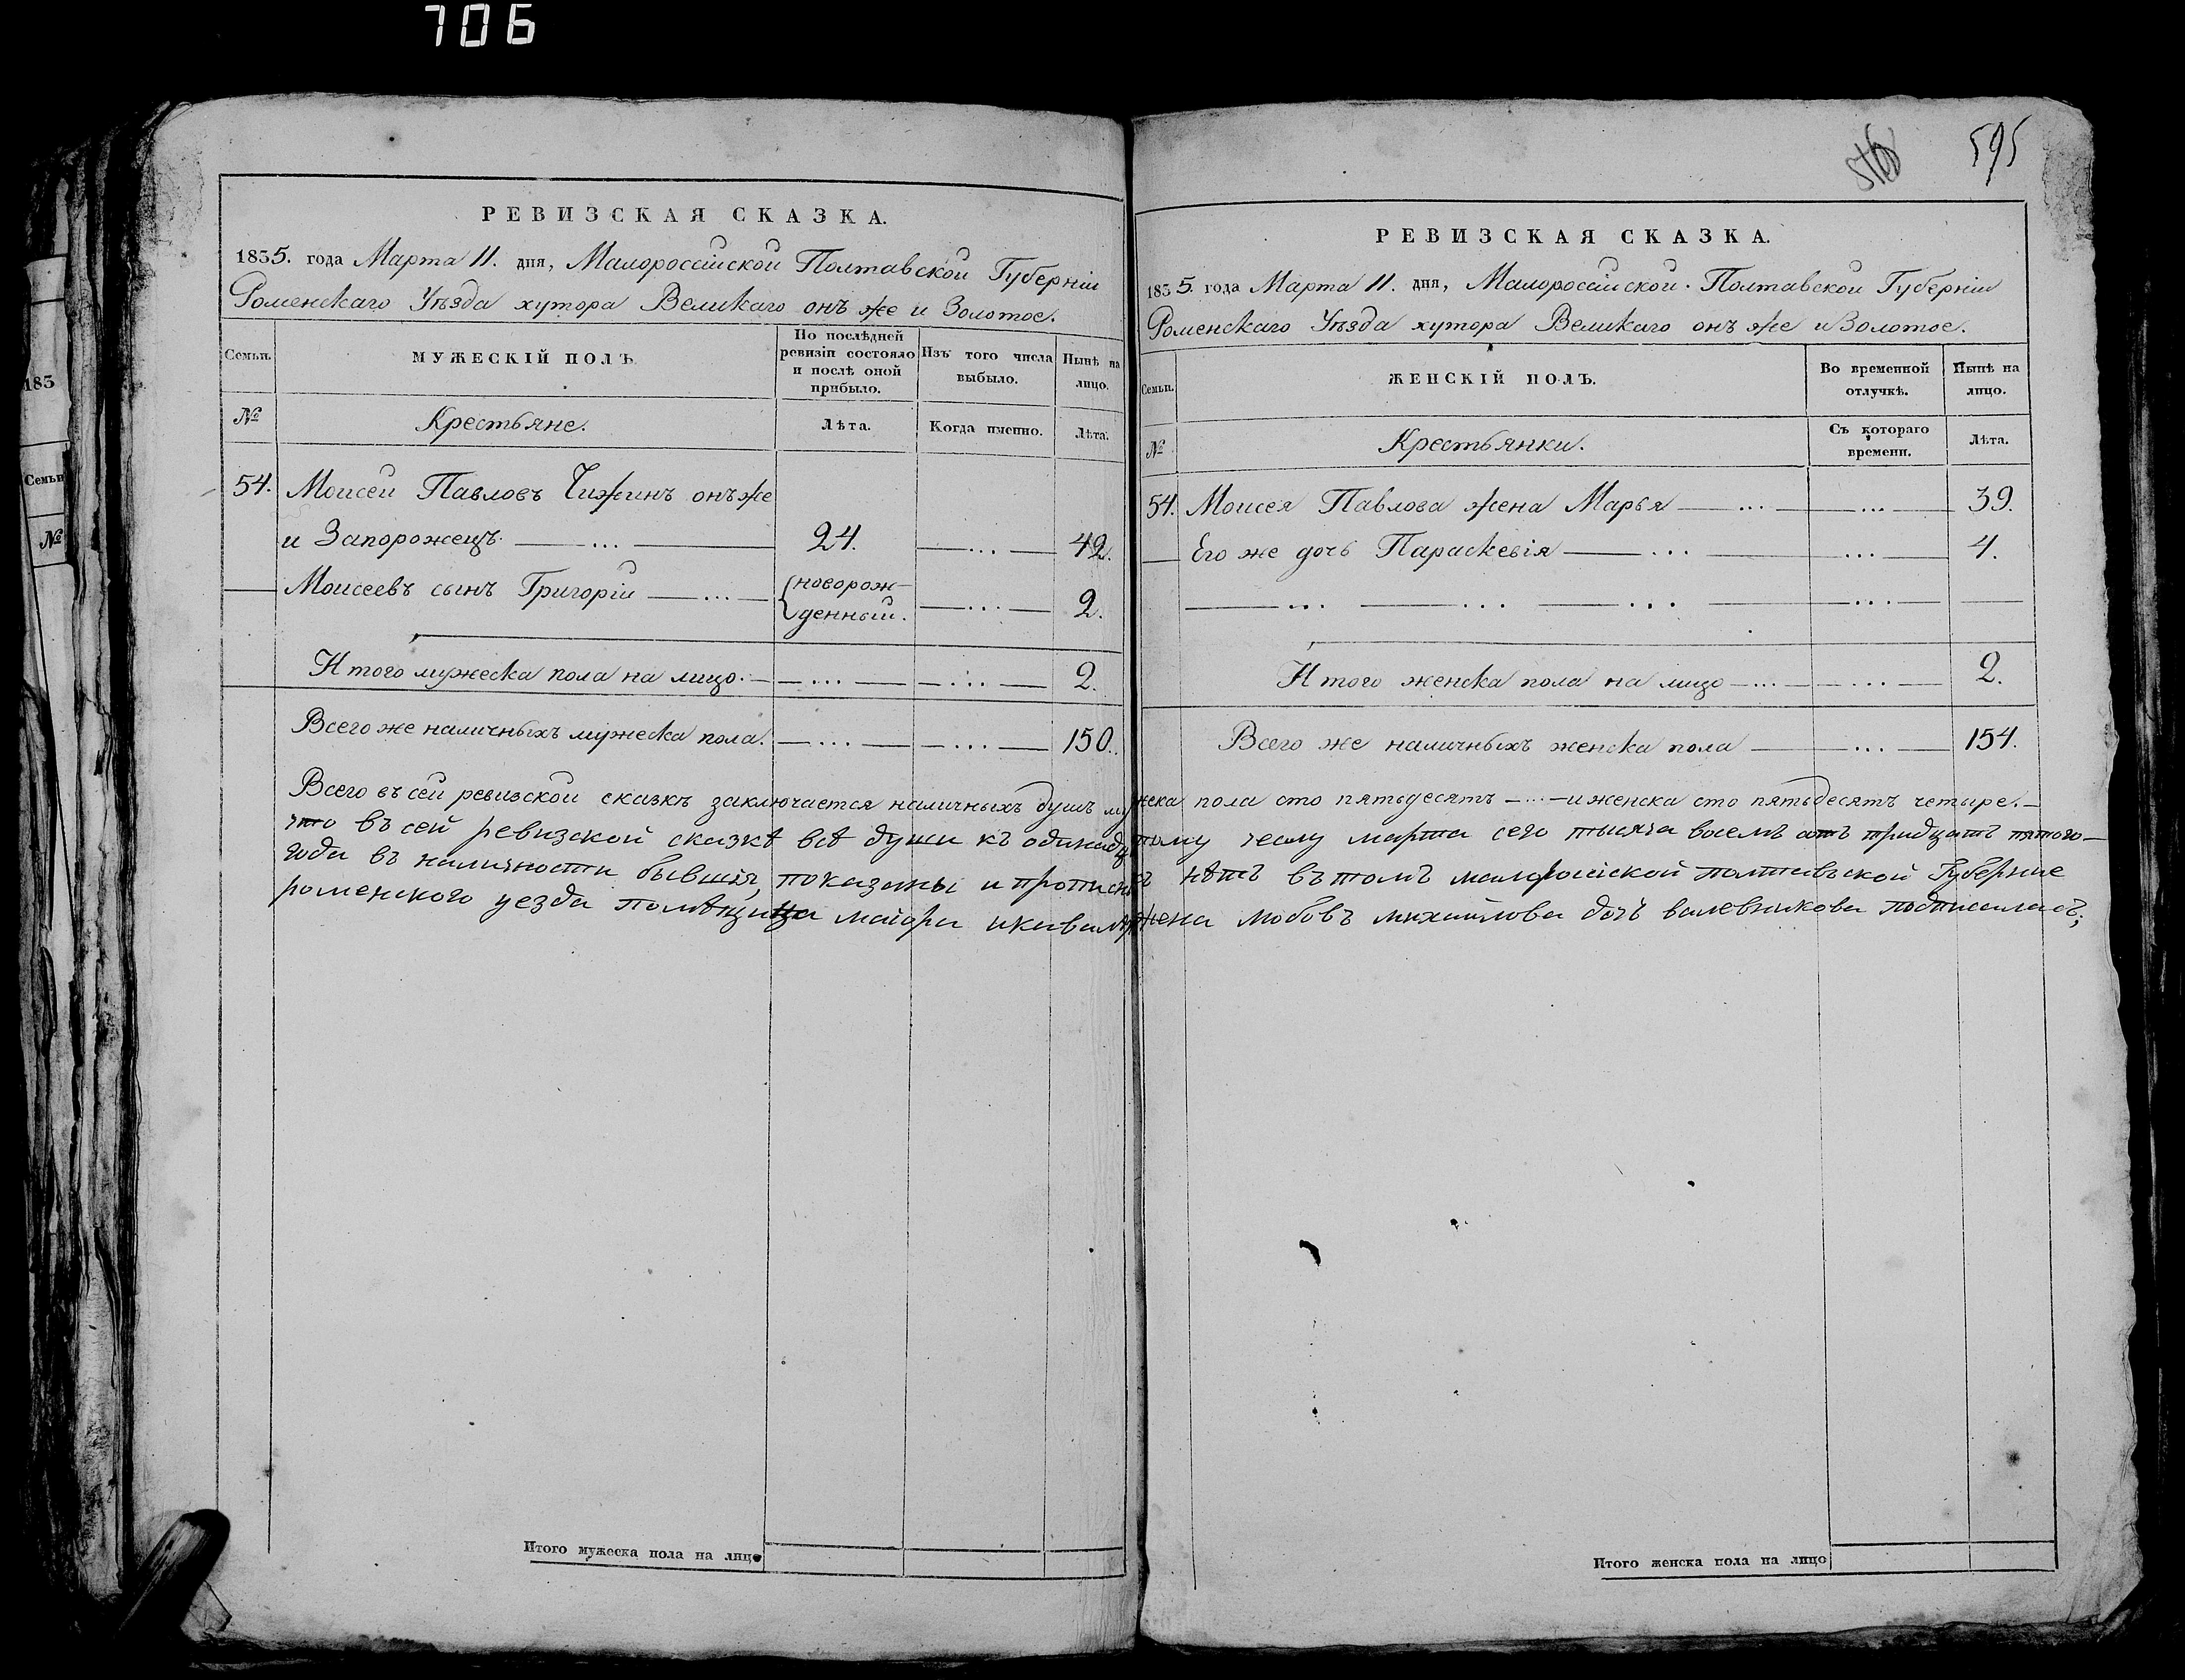 706
595
РЕВИЗСКАЯ СКАЗКА.
1835. года Марта 11. дня, Малороссійской Полтавской Губерніи
Роменскаго Уѣзда хутора Великаго онъ же и Золотое.
Семьи.
МУЖЕСКІЙ ПОЛЪ
По послѣдней
ревизіи состояло
и послѣ оной
прибыло.
Изъ того числа
выбыло.
Нынѣ на
лицо.
№
Крестьяне.
Лѣта.
Когда именно.
Лѣта.
54. Моисей Павловъ Чижинъ онъ же
и Запорожецъ. — ... — 24. — ... — 42.
— Моисеевъ сынъ Григорій — ... — новорож-
денный. — ... — 2.
Итого мужеска пола на лицо. — ... — — ... — 2.
Всего же наличныхъ мужеска пола. — ... — — ... — 150.
РЕВИЗСКАЯ СКАЗКА.
1835. года Марта 11. дня, Малороссійской. Полтавской Губерніи
Роменскаго Уѣзда хутора Великаго онъ же и Золотое.
Семьи.
ЖЕНСКІЙ ПОЛЪ.
Во временной
отлучкѣ.
Нынѣ на
лицо.
№
Крестьянки.
Съ котораго
времени.
Лѣта.
54. Моисея Павлова жена Марья — ... — ... — 39.
— Его же дочь Параскевія — ... — ... — 4.
— ... — ... — ... — ... —
Итого женска пола на лицо — ... — — ... — 2.
Всего же наличныхъ женска пола — ... — 154.
Всего въ сей ревизской сказкѣ заключается наличныхъ душъ мужеска пола сто пятьдесятъ — ... — и женска сто пятьдесятъ четыре. —
что въ сей ревизской сказкѣ всѣ души къ одинадцтому числу марта сего тысяча восемъ сотъ тридцатъ пятого —
года въ наличности бывшія, показаны и нѣтъ въ томъ Губерние
роменского уезда помѣщица маіора жена любовъ михайлова дочъ подписаласъ;
Итого мужеска пола на лицо
Итого женска пола на лицо